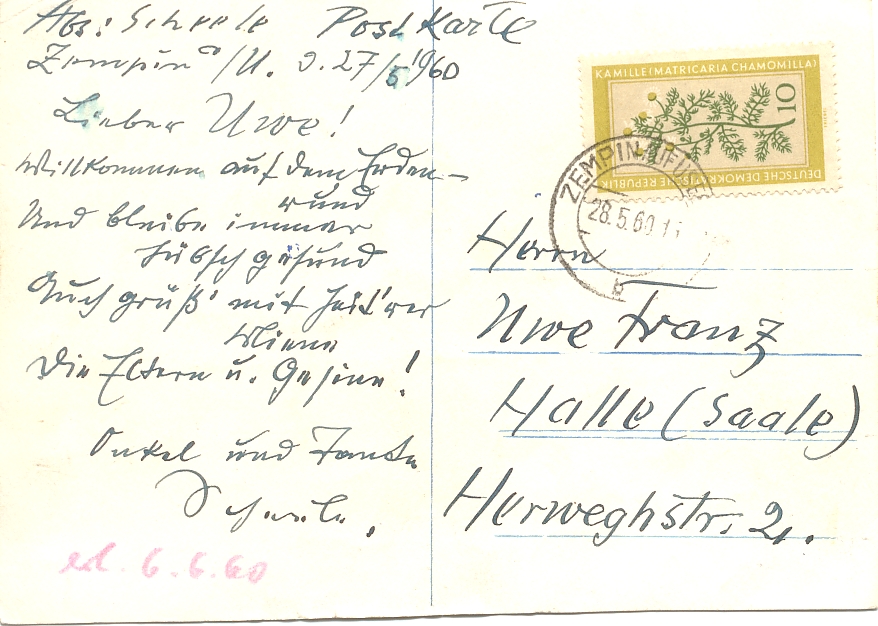 Abs: Scheele Postkarte
Zempin a/U. d. 27/5 1960
Lieber Uwe!
Willkommen auf dem Erden-
rund
Und bleibe immer
hübsch gesund
Auch grüß' mit heit'rer
Miene
Die Eltern u. Gesine!
Onkel und Tante
Scheele.
erl. 6.6.60
KAMILLE (MATRICARIA CHAMOMILLA)
10
DEUTSCHE DEMOKRATISCHE REPUBLIK
ZEMPIN
28.5.60
b
Herrn
Uwe Franz
Halle (Saale)
Herweghstr. 21.